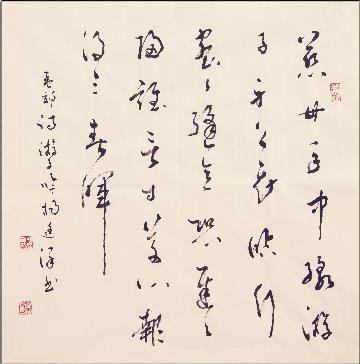 慈母手中線游
子身上衣臨行
密々縫意恐遲々
歸誰言寸草心報
得三春暉
孟郊詩游子吟楊
書